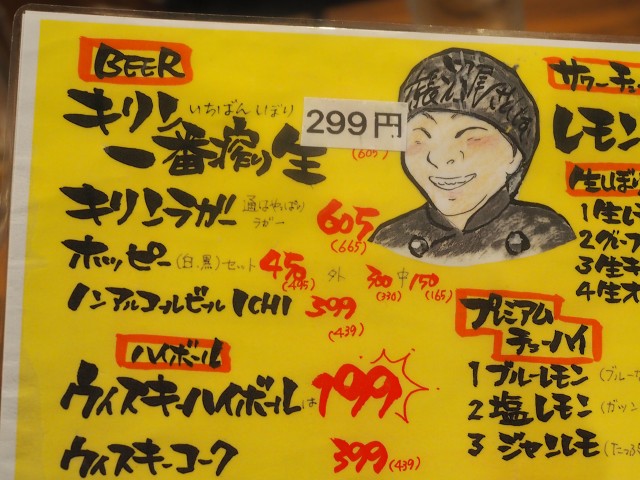 BEER
キリン いちばんしぼり
一番搾り生
299円
(605)
キリンラガー 605
(665)
ホッピー(白、黒)セット 450 外 300 中 150
(495) (330) (165)
ノンアルコールビール ICHI 399
(439)
ハイボール
ウィスキーハイボールは199
ウィスキーコーク 399 (439)
サワーチュー
レモン
生しぼり
1生レ
2グレープ
3生
4生
プレミアム
チューハイ
1 ブルーレモン (ブルー
2 塩レモン (ガツン
3 ジャンレモ (たっぷ